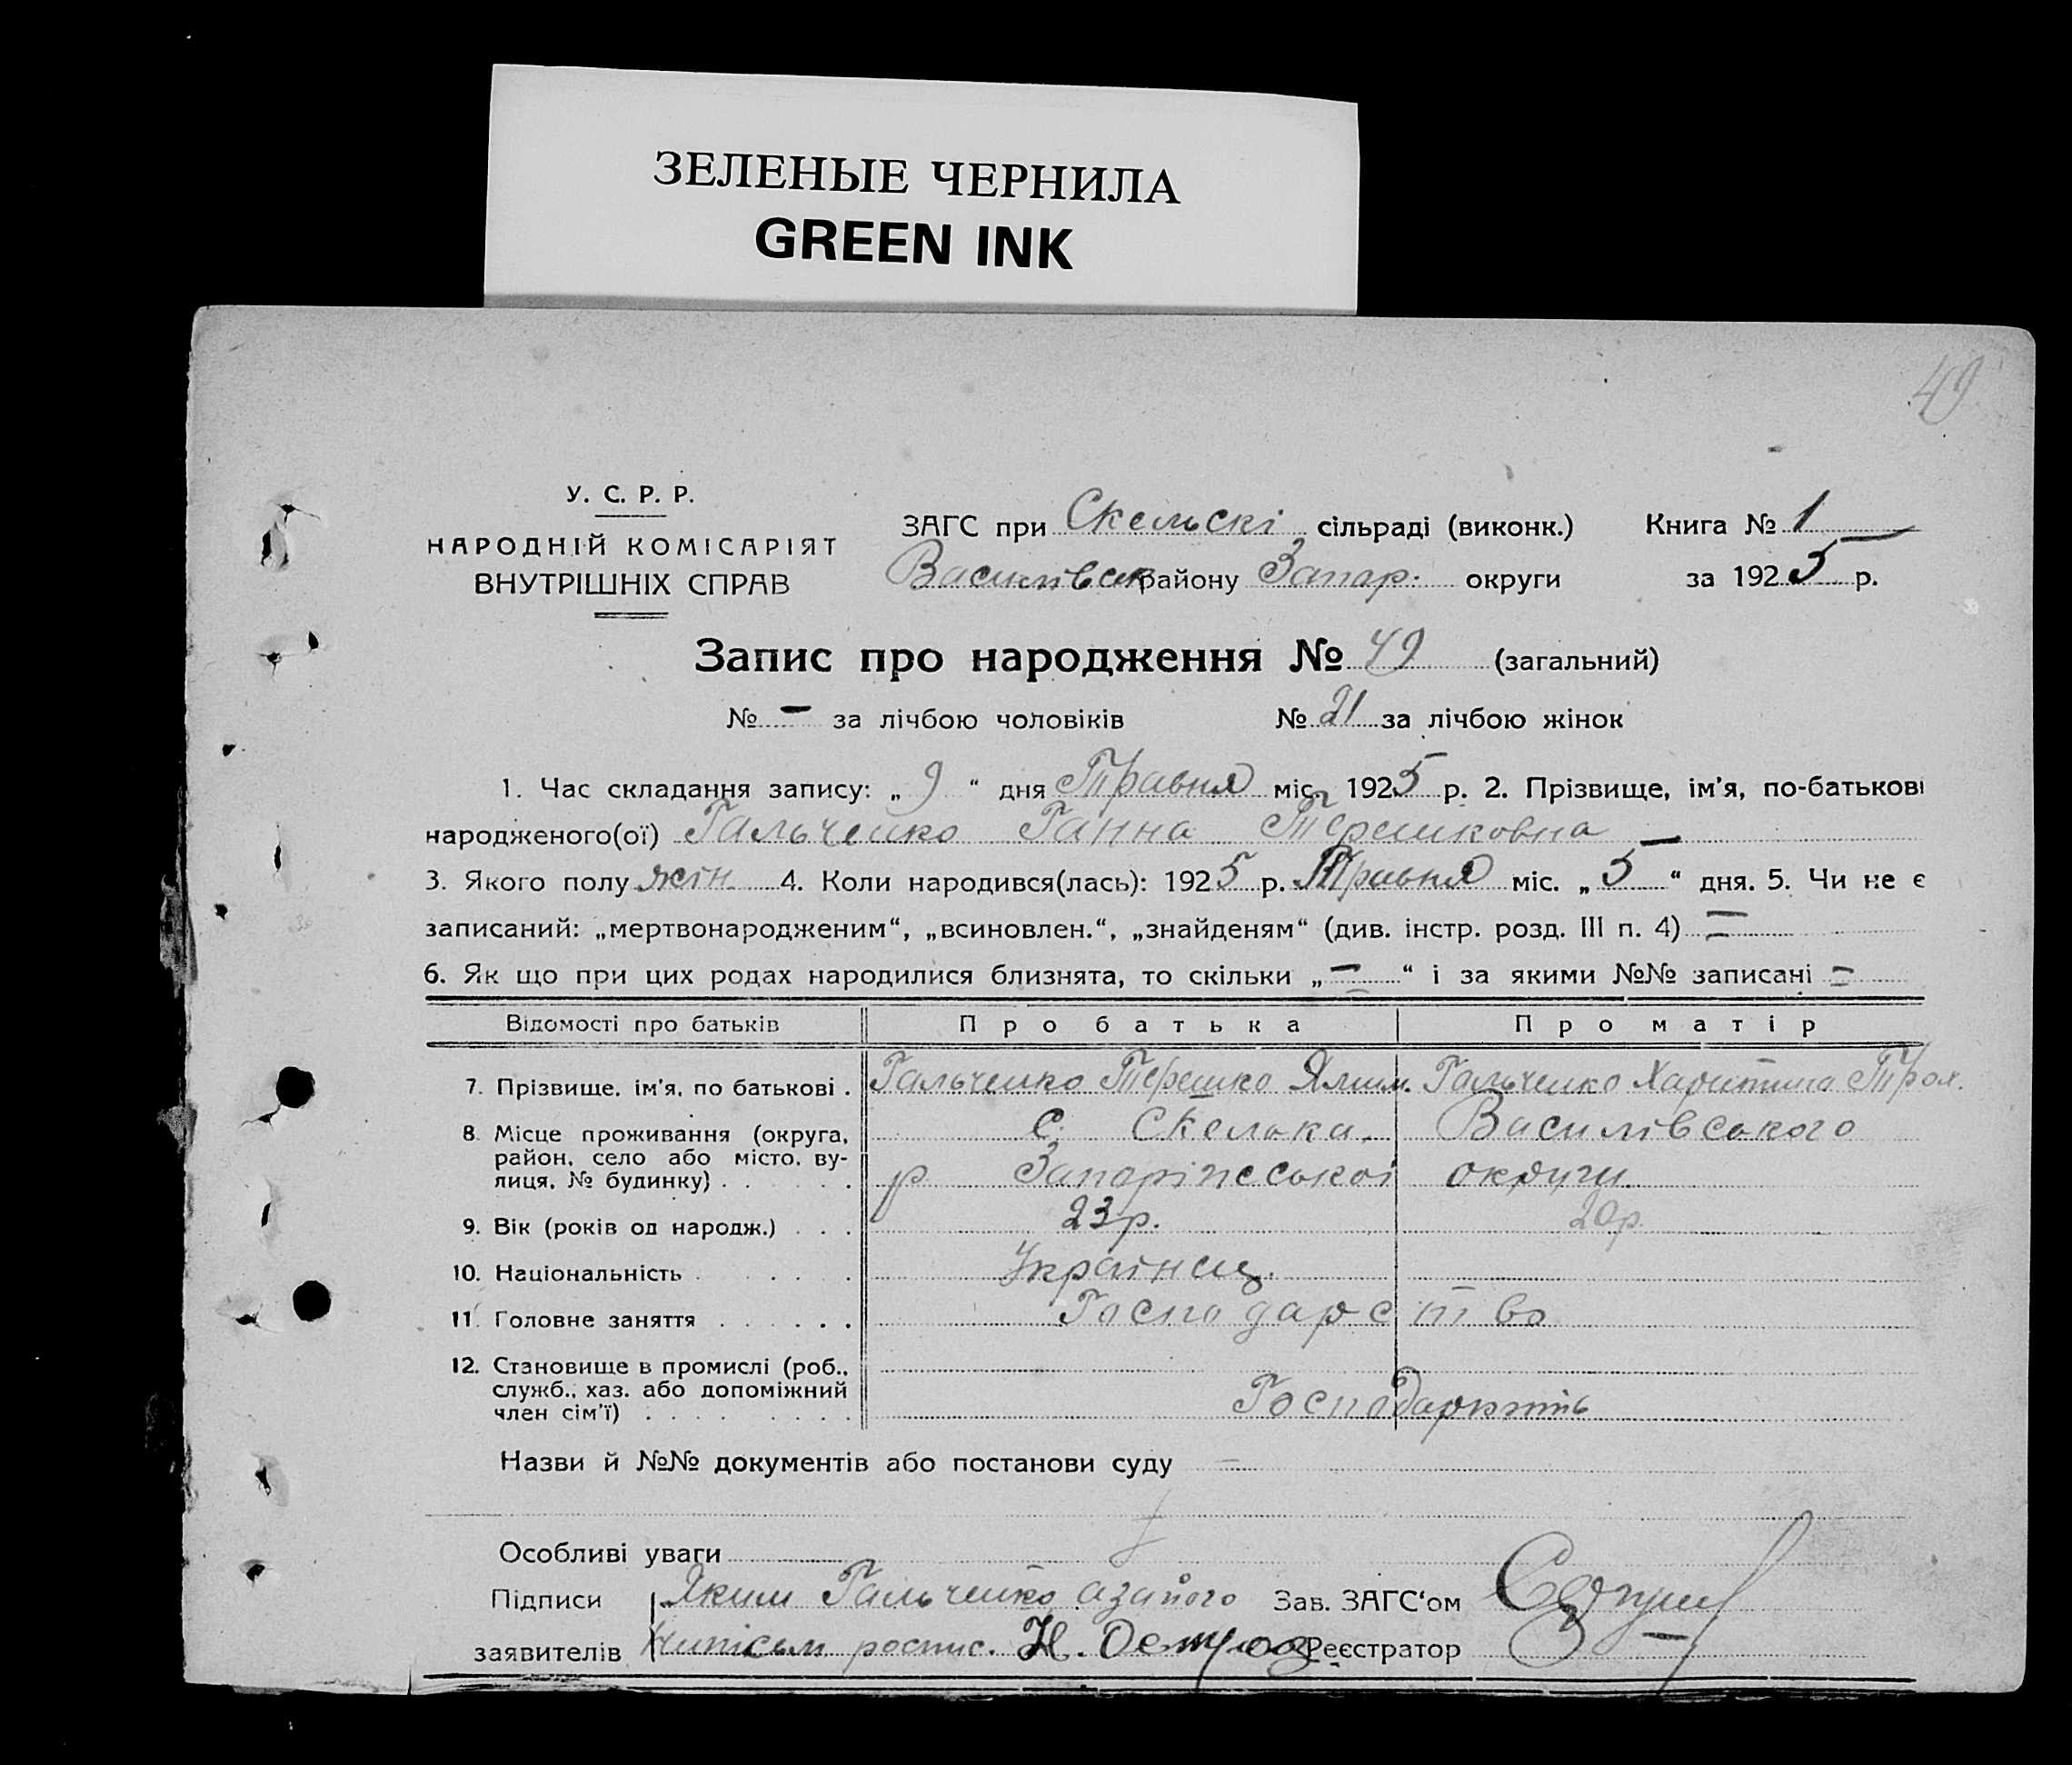 ЗЕЛЕНЫЕ ЧЕРНИЛА
GREEN INK
49
У. С. Р. Р.
НАРОДНІЙ КОМІСАРІЯТ
ВНУТРІШНІХ СПРАВ
ЗАГС при Скельскі сільраді (виконк.) Книга № 1
Василівск району Запор. округи за 1925 р.
Запис про народження № 49 (загальний)
№ – за лічбою чоловіків № 21 за лічбою жінок
1. Час складання запису: „ 9 “ дня Травня міс. 1925 р. 2. Прізвище, ім’я, по-батькові
народженого(ої) Гальченко Ганна Терешковна –
3. Якого полу жін 4. Коли народився(лась): 1925 р. Травня міс. „ 5 “ дня. 5. Чи не є
записаний: „мертвонародженим“, „всиновлен.“, „знайденям“ (див. інстр. розд. III п. 4) =
6. Як що при цих родах народилися близнята, то скільки „ = “ і за якими №№ записані =
Відомості про батьків Про батька Про матір
7. Прізвище, ім’я, по батькові . Гальченко Терешко Яким. Гальченко Харитина Трох.
8. Місце проживання (округа, с. Скелька. Василівського
район, село або місто, ву-
лиця, № будинку) . . . . . р Запоріжської округи.
9. Вік (років од народж.) . . . 23р. 20р.
10. Національність . . . . . Українц.
11. Головне заняття . . . . . . Господарство
12. Становище в промислі (роб.,
служб., хаз. або допоміжний Господарють
член сім’ї) . . . . . . . . .
Назви й №№ документів або постанови суду –
Особливі уваги
Підписи Яким Гальченко азайого Зав. ЗАГС‘ом
заявителів роспис. Н. Реєстратор